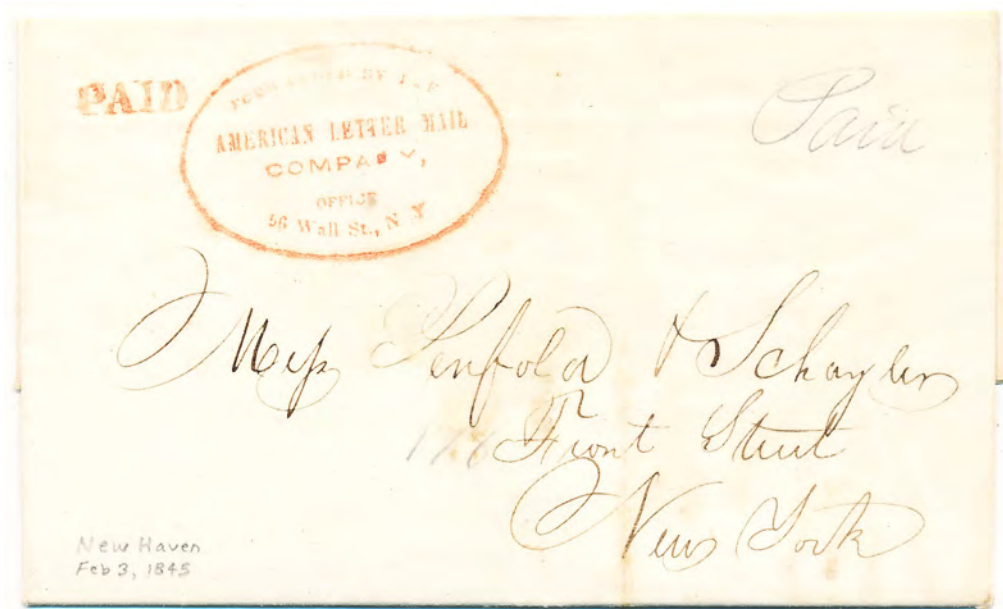 PAID
FORWARDED BY THE
AMERICAN LETTER MAIL
COMPANY,
OFFICE
56 Wall St., N Y
Paid
Mess Penfold & Schuyler
176 Front Street
New York
New Haven
Feb 3, 1845